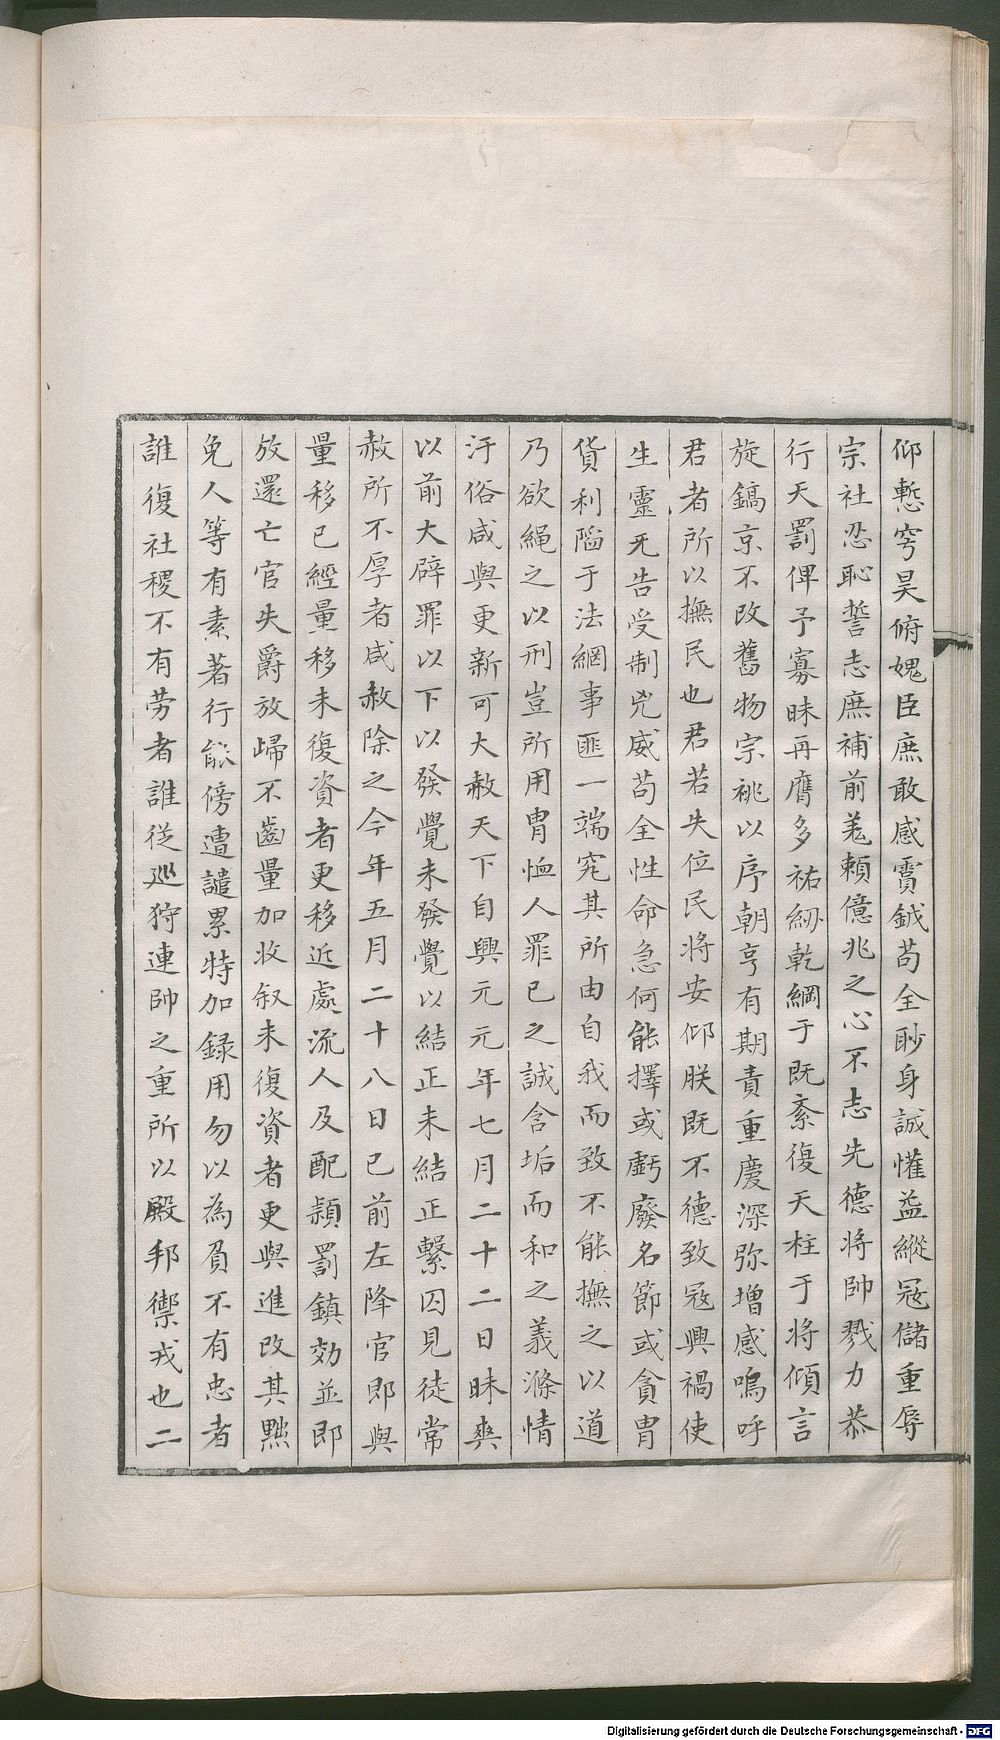 仰慙穹昊俯媿臣庶敢感賣鉞苟全眇身誠懼益縱冦儲重辱
宗社忍恥誓志庶補前羗頼億兆之心不志先德將帥戮力恭
行天罰俾予寡昧再膺多祐紉乾綱于既紊復天柱于將傾言
旋鎬京不改舊物宗祧以序朝亨有期責重慶深弥增感嗚呼
君者所以撫民也君若失位民將安仰朕既不德致冦興禍使
生靈无告受制兇威苟全性命急何能擇或虧廢名節或貪冑
貨利陷于法網事匪一端究其所由自我而致不能撫之以道
乃欲䋲之以刑豈所用冑恤人罪已之誠含垢而和之義滌情
汙俗咸與更新可大赦天下自興元元年七月二十二日昧爽
以前大辟罪以下以發覺未發覺以結正未結正繫囚見徒常
赦所不厚者咸赦除之今年五月二十八日已前左降官即與
量移已經量移未復資者更移近處流人及配頴罰鎮効並即
放還亡官失爵放歸不齒量加收叙未復資者更與進改其黜
免人等有素著行能傍遭譴累特加録用勿以為負不有忠者
誰復社稷不有劳者誰從巡狩連帥之重所以殿邦禦戎也二
Digitalisierung gefördert durch die Deutsche Forschungsgemeinschaft - DFG